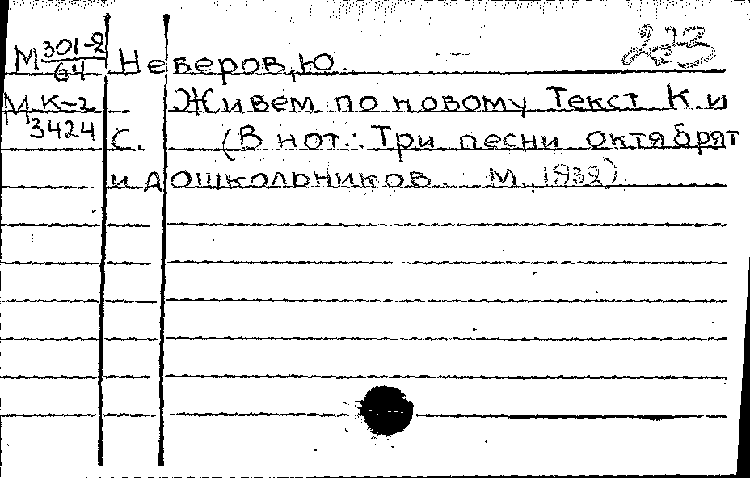 М 301-2/64 Неверов, Ю. 233
М К-2/3424 Живем по новому Текст К и
С. (В нот.: Три песни октябрят
и дошкольников. М, 1932)